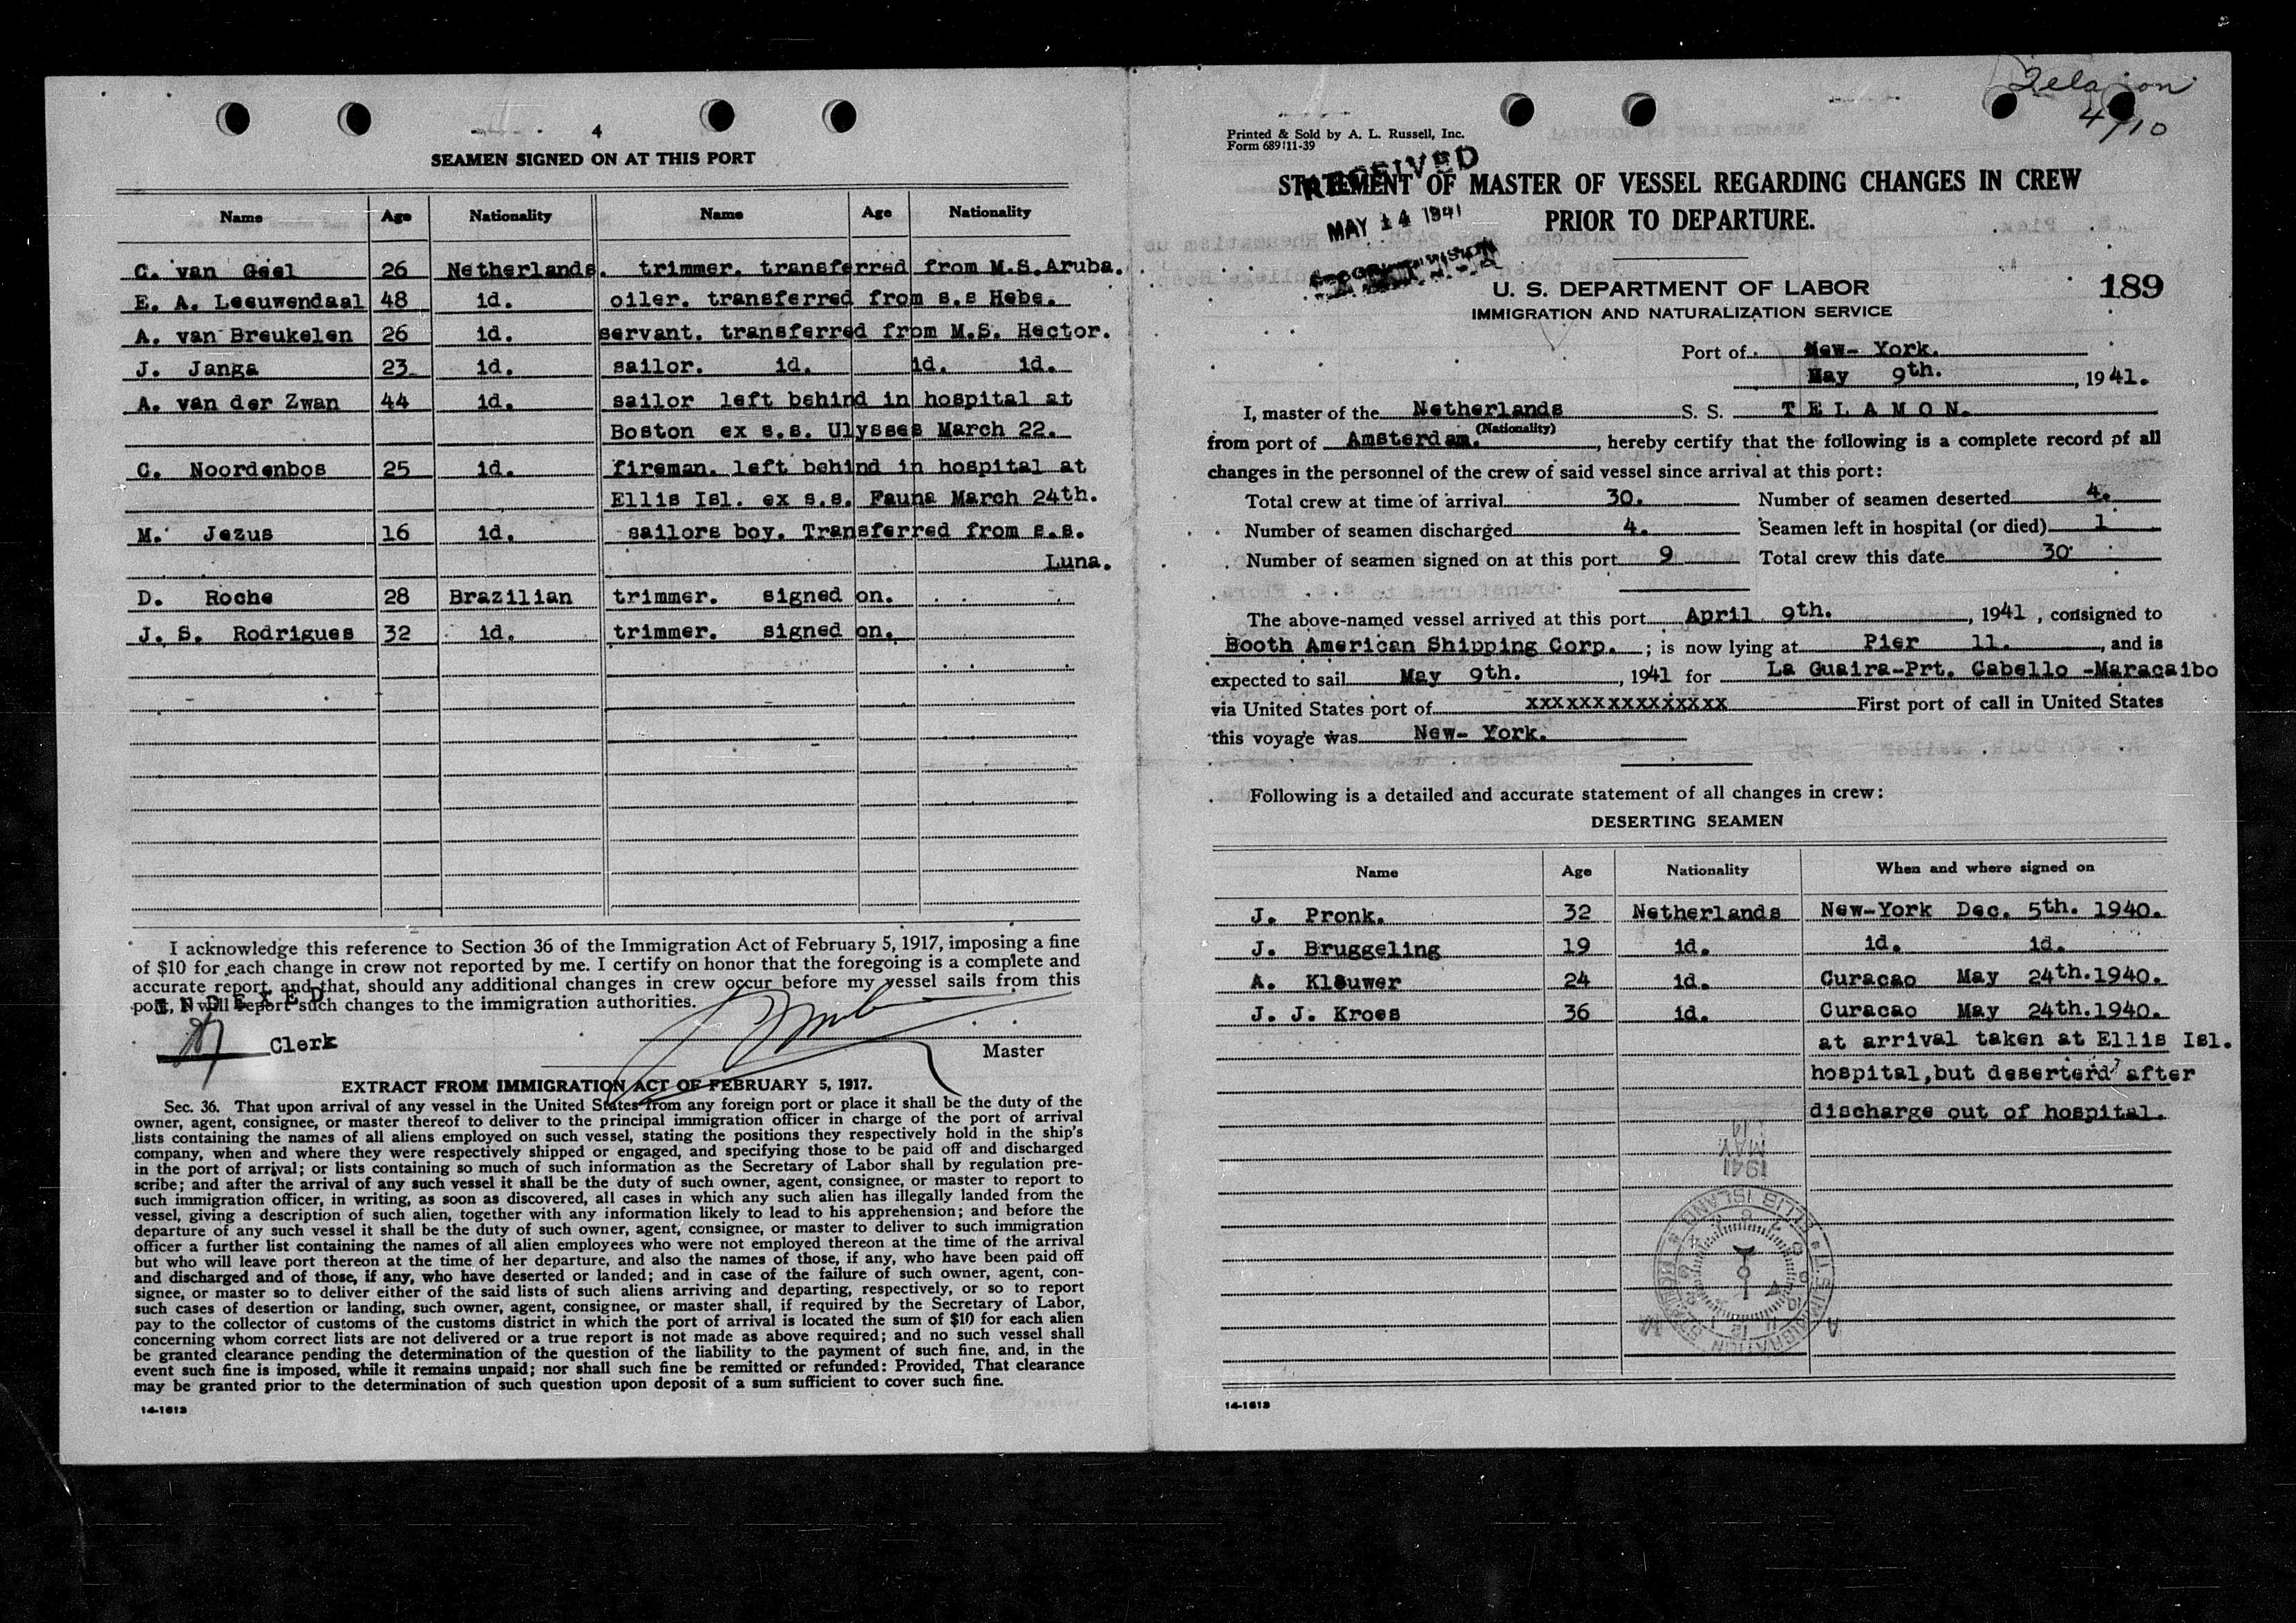 4
SEAMEN SIGNED ON AT THIS PORT
Name Age Nationality Name Age Nationality
C. van Geel 26 Netherlands. trimmer. transferred from M.S.Aruba.
E. A. Leeuwendaal 48 id. oiler. transferred from s.s Hebe.
A. van Breukelen 26 id. servant. transferred from M.S. Hector.
J. Janga 23 id. sailor. id. id. id.
A. van der Zwan 44 id. sailor left behind in hospital at
Boston ex s.s. Ulysses March 22.
C. Noordenbos 25 id. fireman. left behind in hospital at
Ellis Isl. ex s.s. Fauna March 24th.
M. Jezus 16 id. sailors boy. Transferred from s.s.
Luna.
D. Roche 28 Brazilian trimmer. signed on.
J. S. Rodrigues 32 id. trimmer. signed on.
I acknowledge this reference to Section 36 of the Immigration Act of February 5, 1917, imposing a fine
of $10 for each change in crew not reported by me. I certify on honor that the foregoing is a complete and
accurate report, and that, should any additional changes in crew occur before my vessel sails from this
port, I will report such changes to the immigration authorities.
INDEXED
Clerk
Master
EXTRACT FROM IMMIGRATION ACT OF FEBRUARY 5, 1917.
Sec. 36. That upon arrival of any vessel in the United States from any foreign port or place it shall be the duty of the
owner, agent, consignee, or master thereof to deliver to the principal immigration officer in charge of the port of arrival
lists containing the names of all aliens employed on such vessel, stating the positions they respectively hold in the ship's
company, when and where they were respectively shipped or engaged, and specifying those to be paid off and discharged
in the port of arrival; or lists containing so much of such information as the Secretary of Labor shall by regulation pre-
scribe; and after the arrival of any such vessel it shall be the duty of such owner, agent, consignee, or master to report to
such immigration officer, in writing, as soon as discovered, all cases in which any such alien has illegally landed from the
vessel, giving a description of such alien, together with any information likely to lead to his apprehension; and before the
departure of any such vessel it shall be the duty of such owner, agent, consignee, or master to deliver to such immigration
officer a further list containing the names of all alien employees who were not employed thereon at the time of the arrival
but who will leave port thereon at the time of her departure, and also the names of those, if any, who have been paid off
and discharged and of those, if any, who have deserted or landed; and in case of the failure of such owner, agent, con-
signee, or master so to deliver either of the said lists of such aliens arriving and departing, respectively, or so to report
such cases of desertion or landing, such owner, agent, consignee, or master shall, if required by the Secretary of Labor,
pay to the collector of customs of the customs district in which the port of arrival is located the sum of $10 for each alien
concerning whom correct lists are not delivered or a true report is not made as above required; and no such vessel shall
be granted clearance pending the determination of the question of the liability to the payment of such fine, and, in the
event such fine is imposed, while it remains unpaid; nor shall such fine be remitted or refunded: Provided, That clearance
may be granted prior to the determination of such question upon deposit of a sum sufficient to cover such fine.
14-1613
4/10
Printed & Sold by A. L. Russell, Inc.
Form 689 11-39
RECEIVED
MAY 14 1941
STATEMENT OF MASTER OF VESSEL REGARDING CHANGES IN CREW
PRIOR TO DEPARTURE.
U. S. DEPARTMENT OF LABOR
IMMIGRATION AND NATURALIZATION SERVICE
189
Port of New- York.
May 9th. , 1941.
I, master of the Netherlands S. S. TELAMON.
(Nationality)
from port of Amsterdam. , hereby certify that the following is a complete record of all
changes in the personnel of the crew of said vessel since arrival at this port:
Total crew at time of arrival 30. Number of seamen deserted 4.
Number of seamen discharged 4. Seamen left in hospital (or died) 1
Number of seamen signed on at this port 9 Total crew this date 30
The above-named vessel arrived at this port April 9th. , 1941 , consigned to
Booth American Shipping Corp. ; is now lying at Pier 11. , and is
expected to sail May 9th. , 1941 for La Guaira-Prt. Cabello -Maracaibo
via United States port of xxxxxxxxxxxxxxx First port of call in United States
this voyage was New- York.
Following is a detailed and accurate statement of all changes in crew:
DESERTING SEAMEN
Name Age Nationality When and where signed on
J. Pronk. 32 Netherlands New-York Dec. 5th. 1940.
J. Bruggeling 19 id. id. id.
A. Klauwer 24 id. Curacao May 24th.1940.
J. J. Kroes 36 id. Curacao May 24th.1940.
at arrival taken at Ellis Isl.
hospital,but deserterd after
discharge out of hospital.
1941 MAY 14
U.S. IMMIGRATION ELLIS ISLAND
14-1613